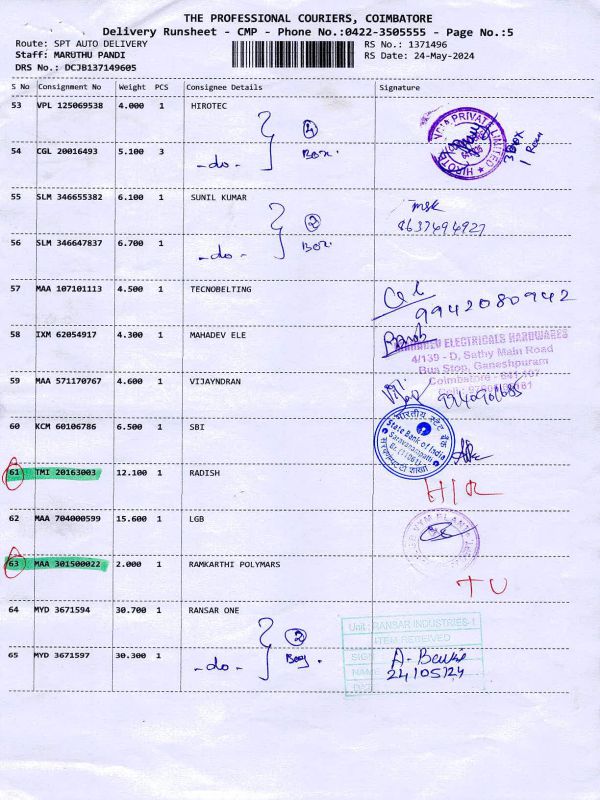 THE PROFESSIONAL COURIERS, COIMBATORE
Delivery Runsheet - CMP - Phone No.:0422-3505555 - Page No.:5
Route: SPT AUTO DELIVERY RS No.: 1371496
Staff: MARUTHU PANDI RS Date: 24-May-2024
DRS No.: DCJB137149605
S No Consignment No Weight PCS Consignee Details Signature
53 VPL 125069538 4.000 1 HIROTEC
PRIVATE LIMITED
3 Box
54 CGL 20016493 5.100 3 -do- Box.
55 SLM 346655382 6.100 1 SUNIL KUMAR
2
56 SLM 346647837 6.700 1 -do- Box.
57 MAA 107101113 4.500 1 TECNOBELTING
9942080942
58 IXM 62054917 4.300 1 MAHADEV ELE
ELECTRICALS HARDWARES
4/139 - D, Sathy Main Road
Bus Stop, Ganeshpuram
Coimbatore - 641 107
59 MAA 571170767 4.600 1 VIJAYNDRAN
60 KCM 60106786 6.500 1 SBI
भारतीय स्टेट बैंक
State Bank of India
61 TMI 20163003 12.100 1 RADISH H/R
62 MAA 704000599 15.600 1 LGB
63 MAA 301500022 2.000 1 RAMKARTHI POLYMARS
TU
64 MYD 3671594 30.700 1 RANSAR ONE
2
Unit: RANSAR INDUSTRIES-1
ITEM RECEIVED
65 MYD 3671597 30.300 1 -do-
SIGN
NAME 24/05/24